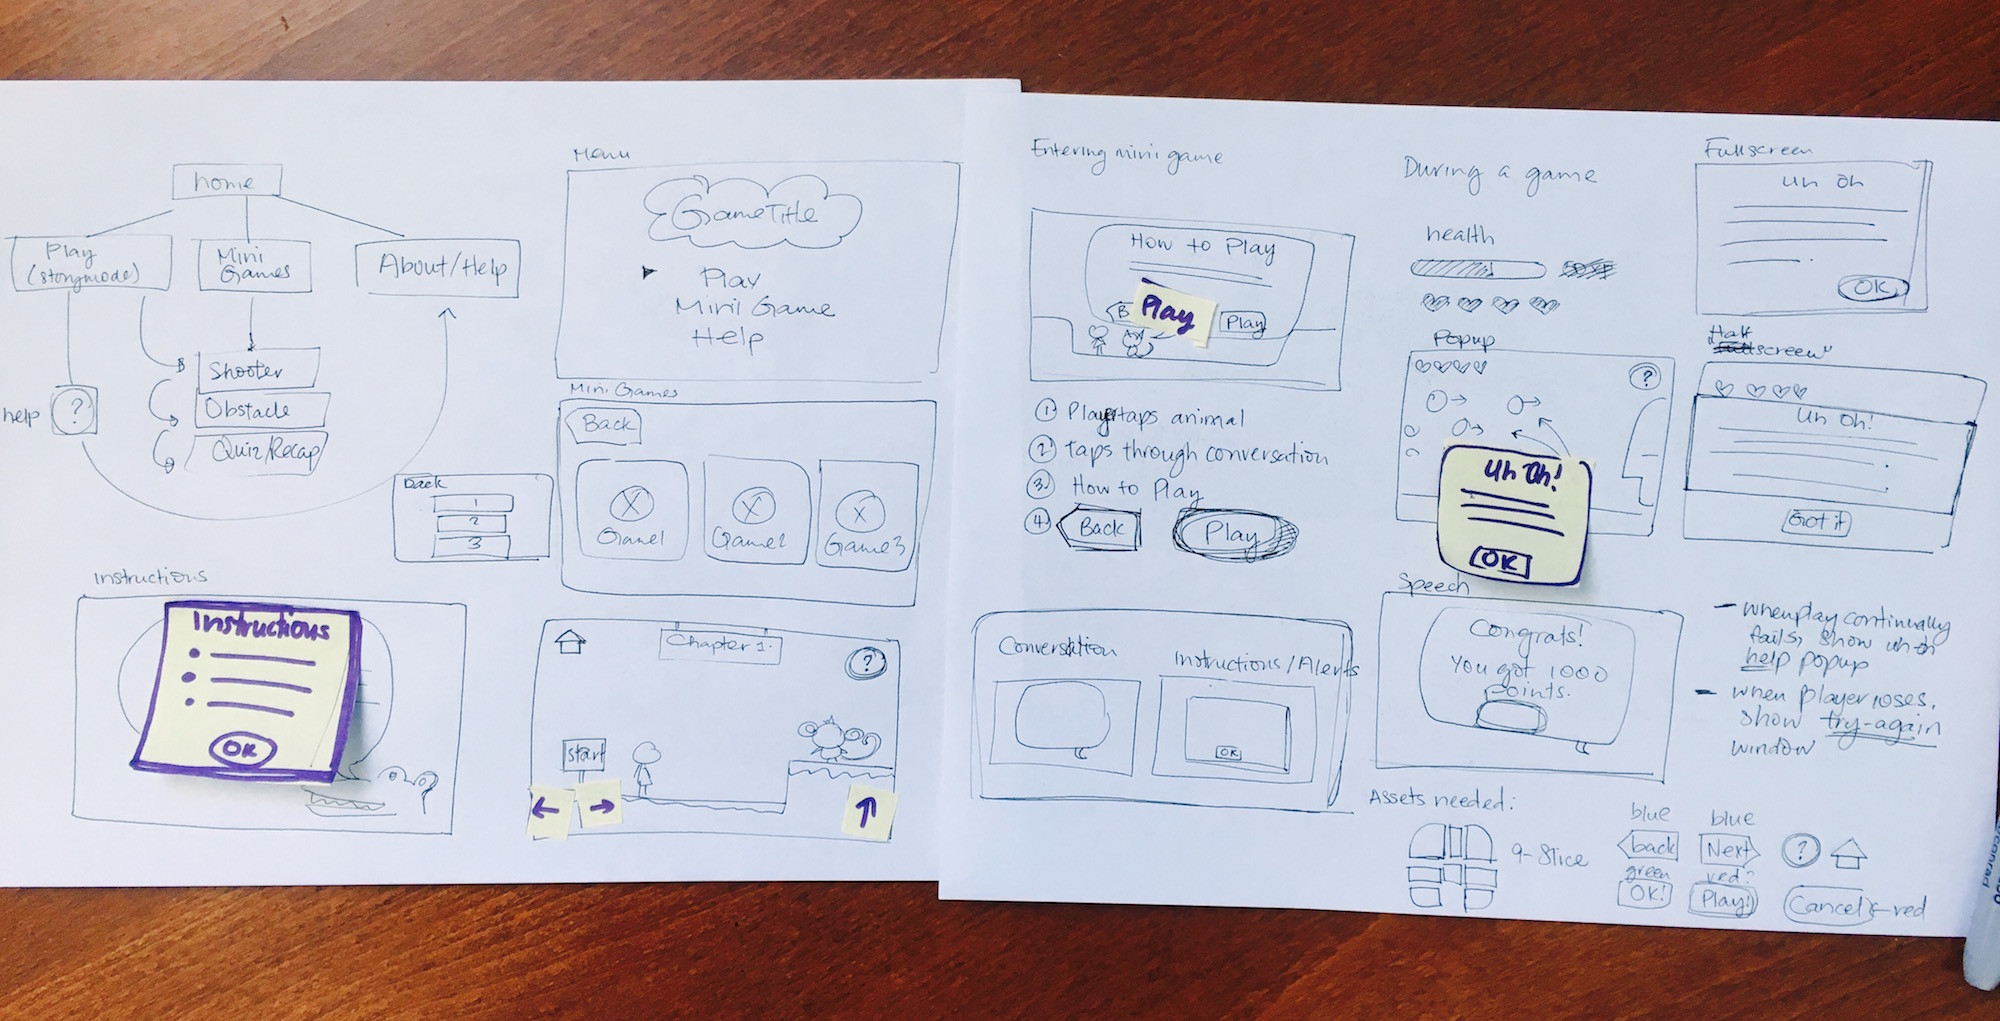 home
Play
(storymode)
Mini
Games
About/Help
Shooter
Obstacle
Quiz/Recap
help
?
Menu
GameTitle
Play
Mini Game
Help
Mini Games
Back
Game1
Game2
Game3
Back
1
2
3
Instructions
Instructions
OK
Chapter 1.
?
start
Entering mini game
How to Play
B
Play
Play
1 Player taps animal
2 Taps through conversation
3 How to Play
4 Back
Play
Conversation
Instructions/Alerts
OK
During a game
health
Popup
?
Uh Oh!
OK
Speech
Congrats!
You got 1000
points.
Fullscreen
Uh Oh
OK
Half
screen"
Uh Oh!
Got it
- when play continually
fails, show uh oh
help popup
- when player loses,
show try-again
window
Assets needed:
9-Slice
blue
back
blue
Next
?
green
OK!
red?
Play!
Cancel
red